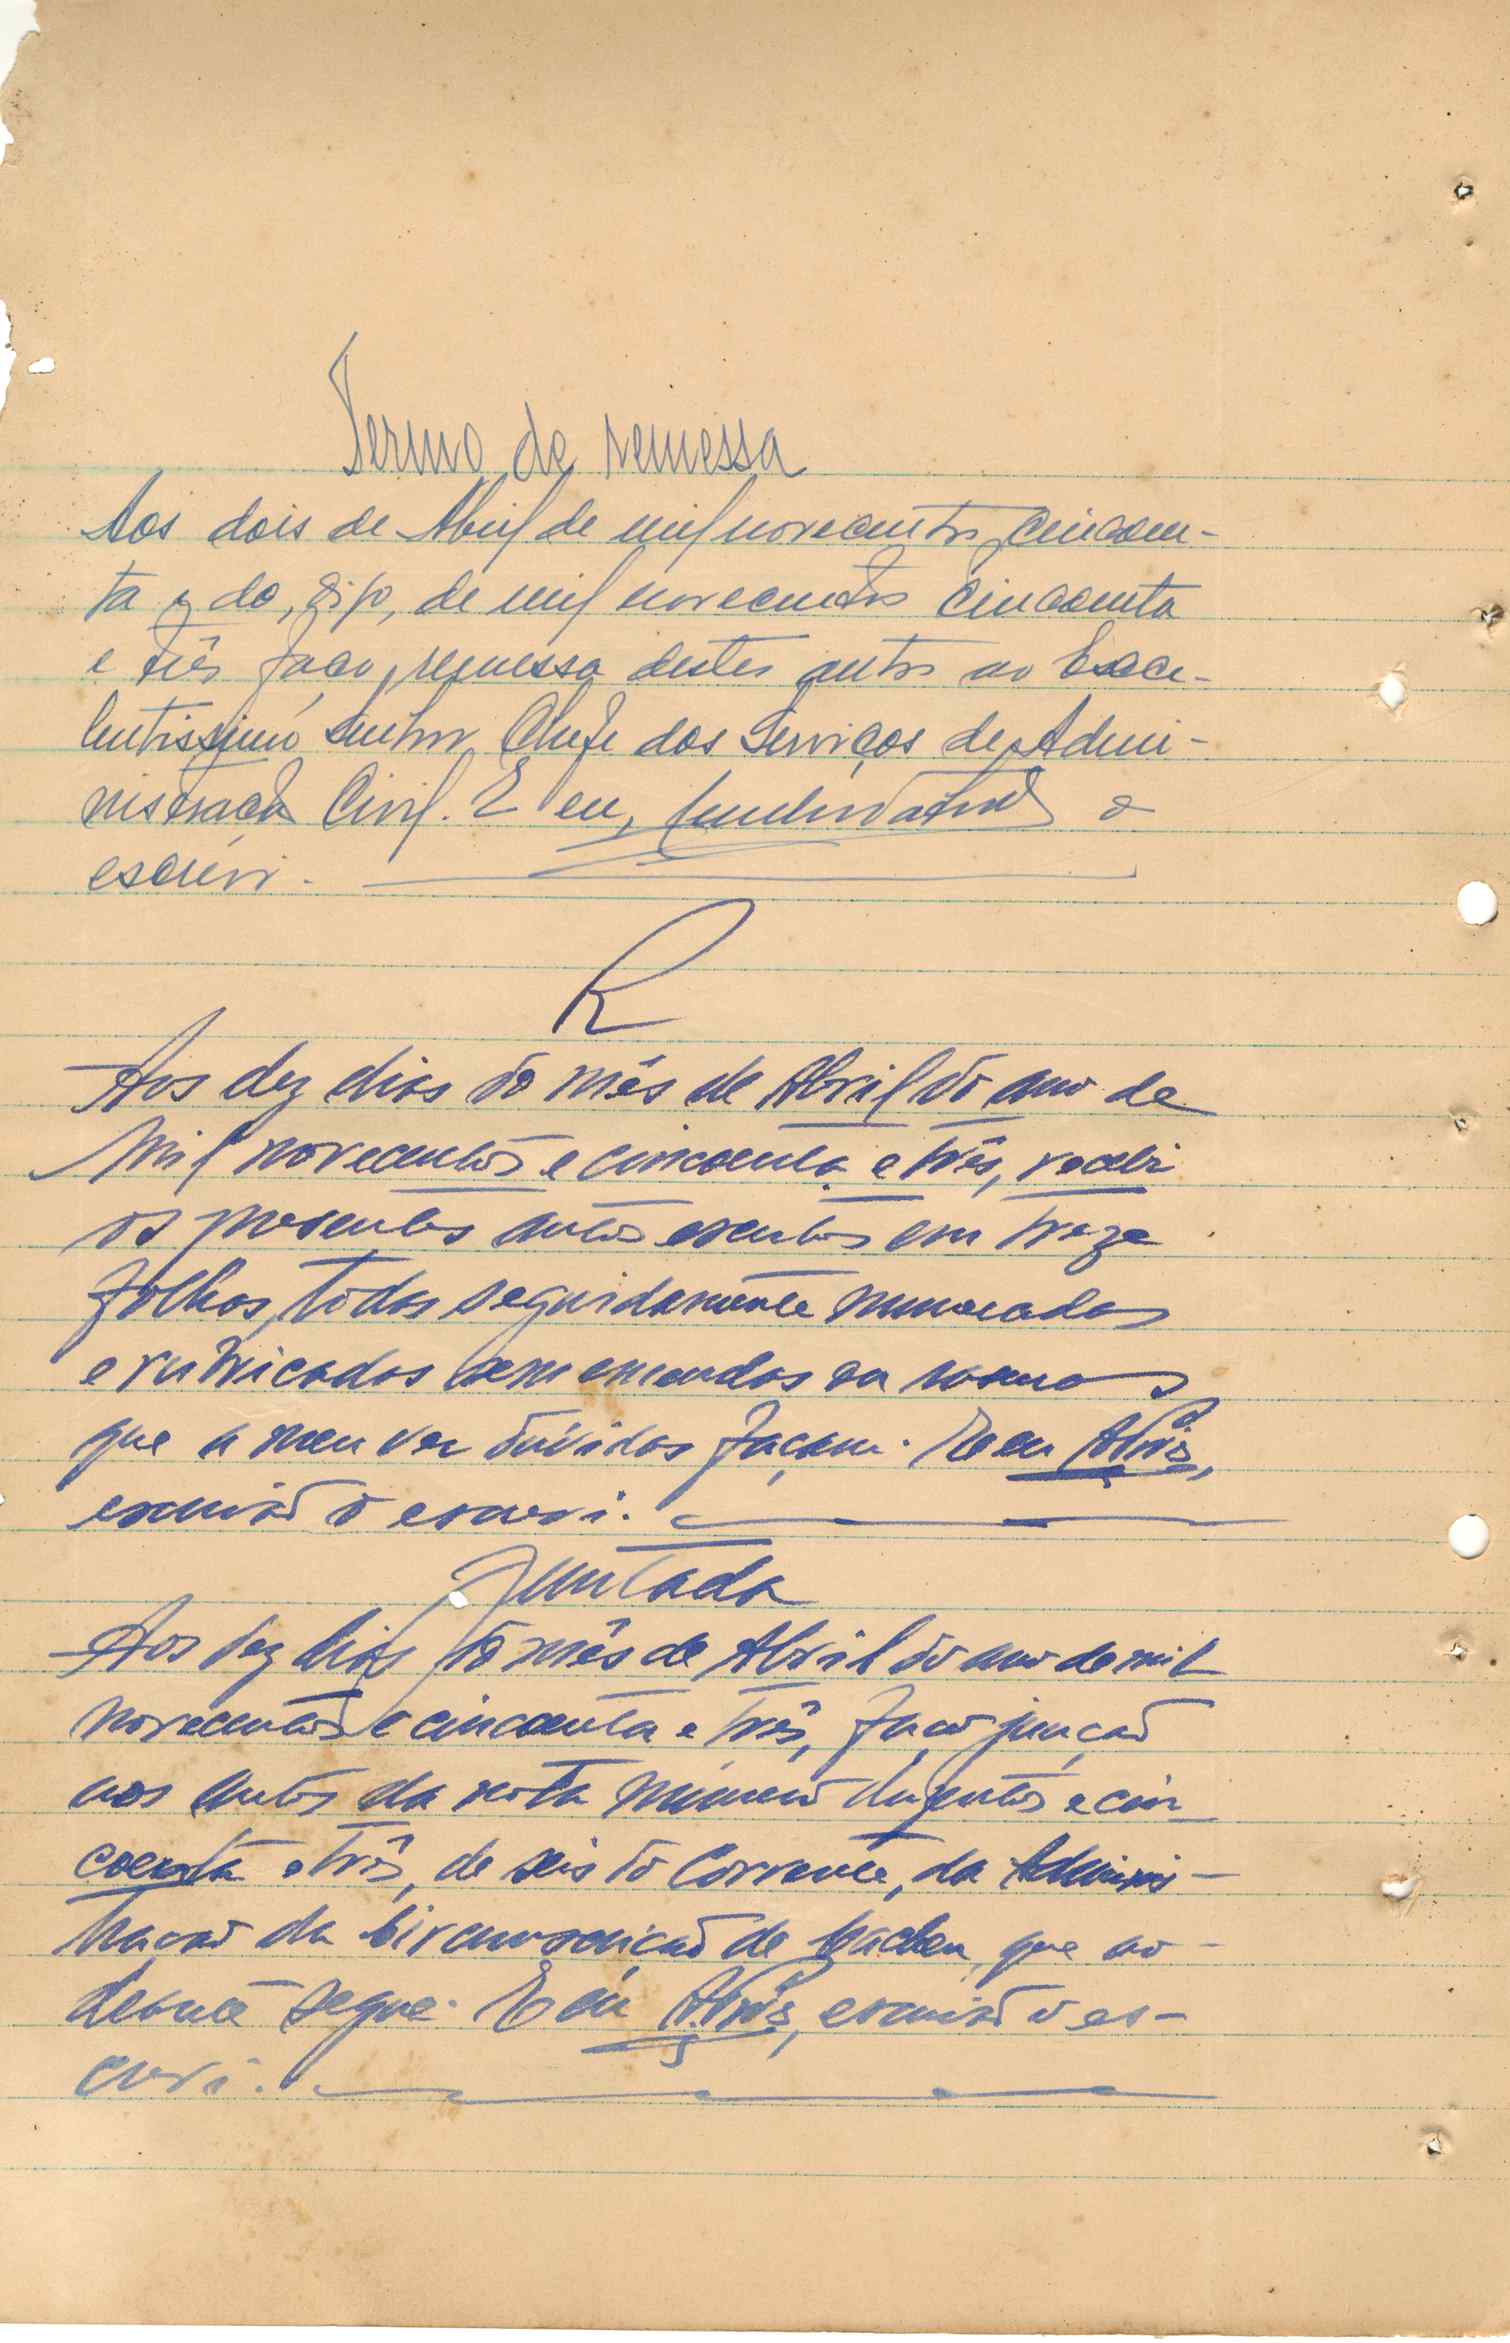 Termo de remessa
Aos dois de Abril de mil novecentos cincoen-
ta e do, digo, de mil novecentos cincoenta
e três faço remessa destes autos ao Exce-
lentissimo Senhor Chefe dos Serviços de Admi-
nistração Civil. E eu, o
escrevi.
R
Aos dez dias do mês de Abril do ano de
mil novecentos e cincoenta e três, recebi
os presentes autos escritos em treze
folhas, todas seguidamente numeradas
e rubricadas sem emendas ou rasuras
que a meu ver dúvidas façam. E eu Alves,
escrivão o escrevi.
Juntada
Aos dez dias do mês de Abril do ano de mil
novecentos e cincoenta e três, faço junção
aos autos da nota número duzentos e cin-
coenta e três, de seis do corrente, da Adminis-
tração da Circunscrição de Cacheu, que ao
deante segue. E eu Alves, escrivão o es-
crevi.